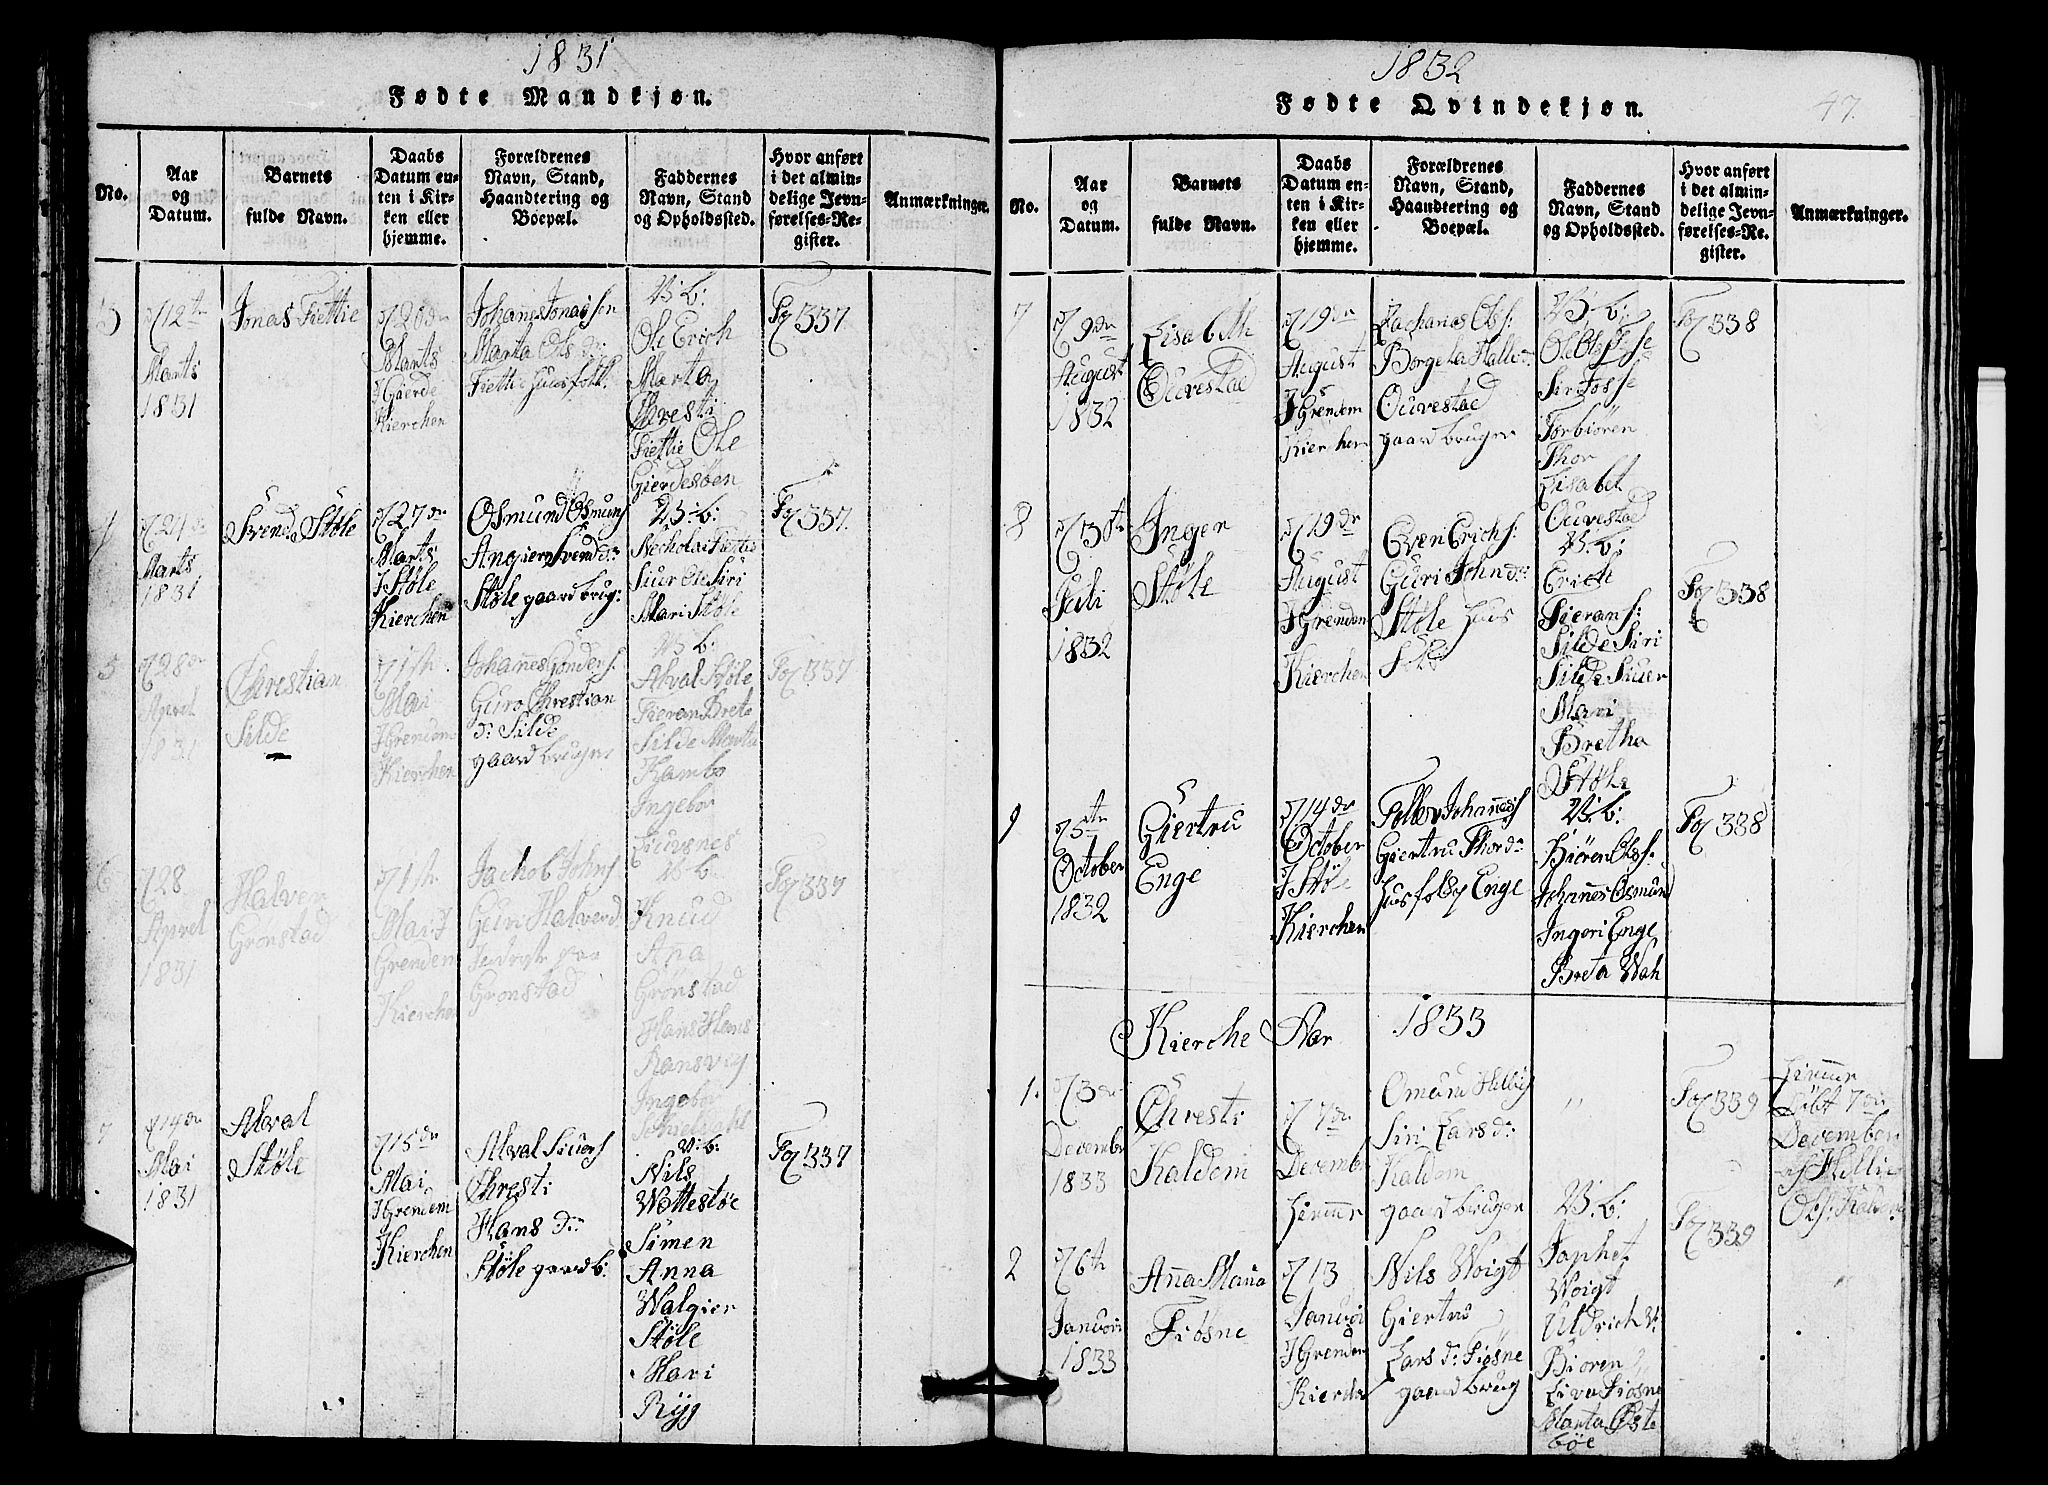 1831
Fødte Mandkjøn.
No.
Aar
og
Datum.
Barnets
fulde Navn.
Daabs
Datum en-
ten i Kir-
ken eller
hjemme.
Forældrenes
Navn, Stand,
Haandtering og
Boepæl.
Faddernes
Navn, Stand
og Opholdssted.
Hvor anført
i det almin-
delige Jevn-
førelses-Re-
gister.
Anmærkninger.
3
12te
Marts
1831
Jonas Fiettie
20de
Marts
I Gierde
Kierchen
Johanes Jonassen
Marta Ols d:
Fiettie huusfolk
V. b:
Ole Erich
Marta
Chresti
Fiettie Ole
Gierdesøen
Fol 337
4
24de
Marts
1831
Svend Støle
27de
Marts
I Støle
Kierchen
Osmund Osmunds
Angiern Svend d:
Støle gaard brug:
V. b:
Necholai Fiettie
Siur Ole Siri
Mari Støle
Fol 337
5
28de
Aprel
1831
Chrestian
Silde
1ste
Mai
I Grendem
Kierchen
Johanes Gonders:
Guro Chrestian
d: Silde
gaard bruger
V. b:
Alval Støle
Sieran Breta
Silde Marta
Kambo
Ingebor
Liusnes
Fol 337
6
28
Aprel
1831
Halver
Gronstad
1ste
Mai I
Grendem
Kierchen
Jachob Johns
Guri Halverd
Gronstad
V. b:
Knud
Ana
Grønstad
Hans Hans
Ransvey
Ingebor
Fol 337
7
14de
Mai
1831
Alval
Støle
15de
Mai
I Grendem
Kierchen
Alval Siuers
Chresti
Hans d:
Støle gaard b:
V. b:
Nils
Wottestøe
Simen
Anna
Walgier
Støle
Mari
Rygg
Fol 337
1832
47.
Fødte Qvindekjøn.
No.
Aar
og
Datum.
Barnets
fulde Navn.
Daabs
Datum en-
ten i Kir-
ken eller
hjemme.
Forældrenes
Navn, Stand,
Haandtering og
Boepæl.
Faddernes
Navn, Stand
og Opholdssted.
Hvor anført
i det almin-
delige Jevn-
førelses-Re-
gister.
Anmærkninger.
7
9de
August
1832
Lisabeth
Ouvestad
19de
August
I Grendem
Kierchen
Zacharias Ols:
Borgela Halle
Ouvestad
gaard bruger
V. b:
Ole Ole Fosse
Siri Fosse
Torbiøren
Thor
Lisabet
Ouvestad
Fol 338
8
30te
Juli
1832
Inger
Støle
19de
August
I Grenden
Kierchen
Even Erichs:
Guri John d:
Støle huus
folk
V. b:
Erich
Sierans:
Silde Siri
Silde Siuer
Mari
Bretha
Støle
Fol 338
9
5te
October
1832
Giertru
Enge
14de
October
I Støle
Kierchen
Tollev Johaness
Giertru Thord:
huusfolk Enge
V. b:
Biören Ols:
Johannes Osmund
Ingeri Enge
Breta Wah
Fol 338
Kierche Aar 1833
1.
3de
Decembr
1833
Chresti
Kaldem
7de
Decembr
hiemme
Omund Hellies
Siri Lars d:
Kaldem
gaard bruger
"
Fol 339
hiemme
døbt 7de
December
af Hellie
Ols: Kaldem
2
6te
Januari
1833
Anna Maria
Fiøsne
13
Januari
I Grenden
Kierche
Nils Voigt
Giertru
Lars d: Fiøsne
gaard brug
V. b:
Japhet
Voigt
Uldrich V:
Biøren
Liva Fiøsne
Marta Øste
böe
Fol 339